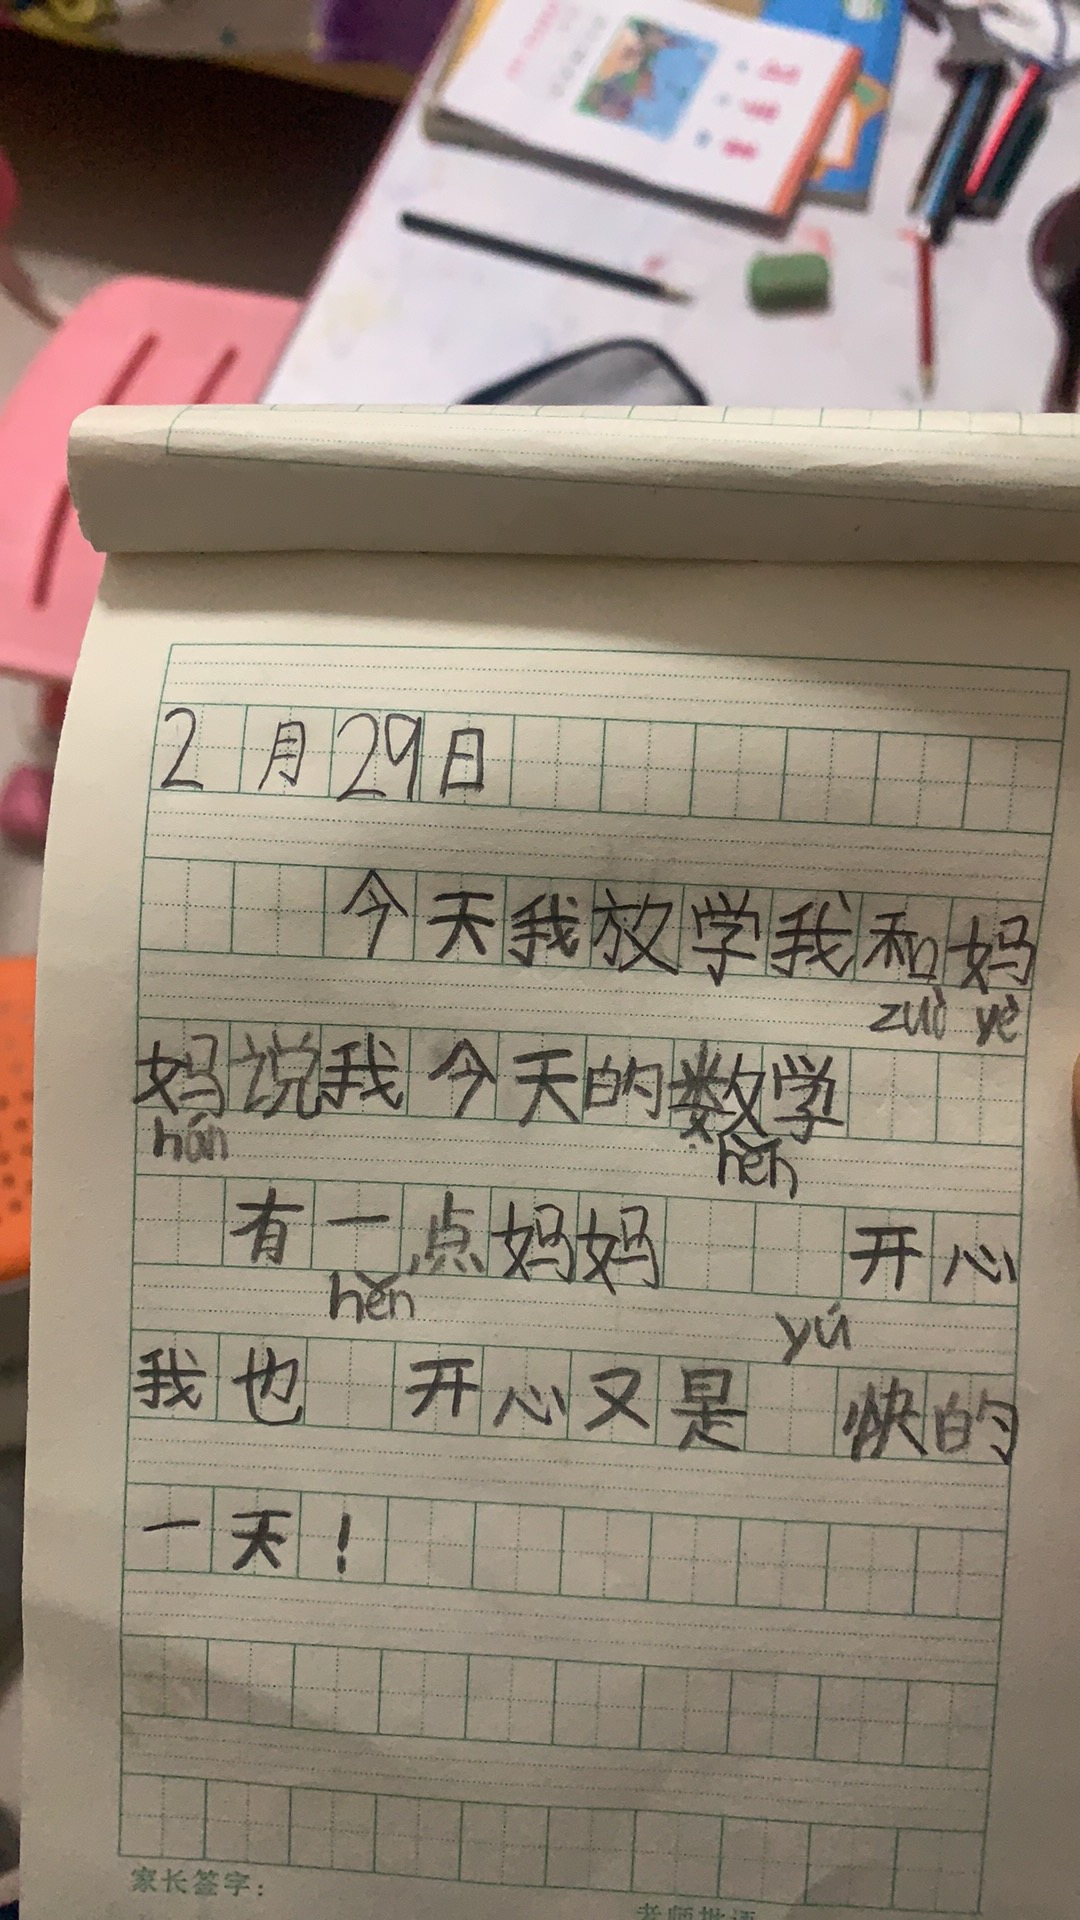 2月29日
今天我放学我和妈
zuò yè
妈说我今天的数学
hán hěn
有一点妈妈 开心
hěn yú
我也 开心又是 快的
一天!
家长签字:
老师批语